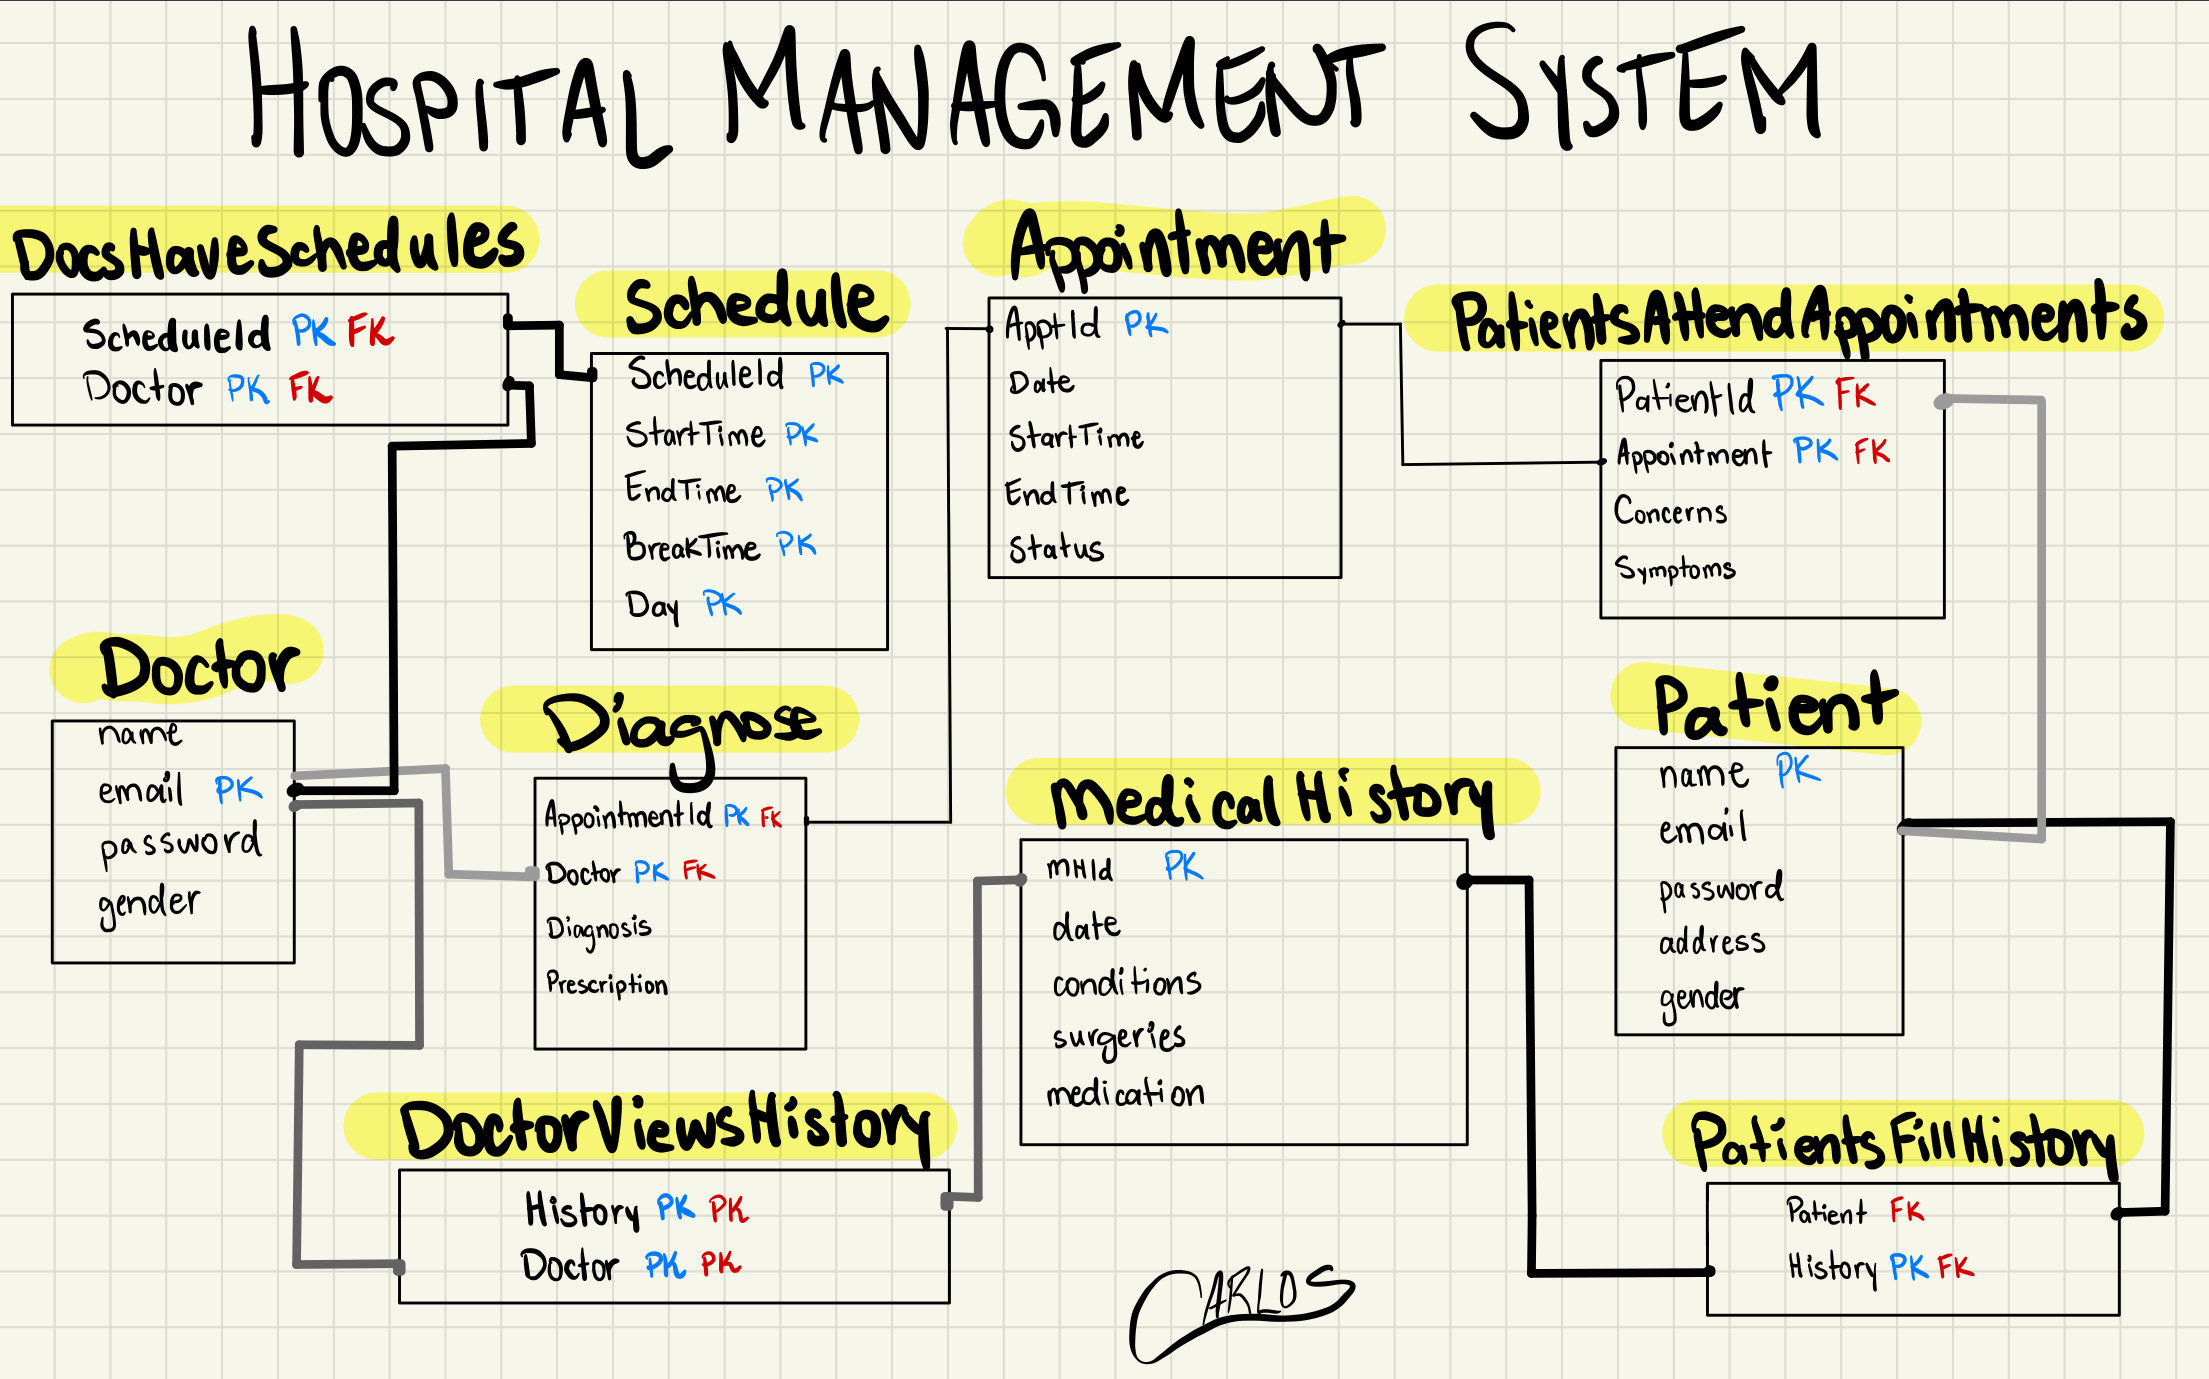 HOSPITAL MANAGEMENT SYSTEM
DocsHaveSchedules
ScheduleId PK FK
Doctor PK FK
Schedule
ScheduleId PK
StartTime PK
EndTime PK
BreakTime PK
Day PK
Appointment
ApptId PK
Date
StartTime
EndTime
Status
PatientsAttendAppointments
PatientId PK FK
Appointment PK FK
Concerns
Symptoms
Doctor
name
email PK
password
gender
Diagnose
AppointmentId PK FK
Doctor PK FK
Diagnosis
Prescription
MedicalHistory
MHId PK
date
conditions
surgeries
medication
Patient
name PK
email
password
address
gender
DoctorViewsHistory
History PK PK
Doctor PK PK
PatientsFillHistory
Patient FK
History PK FK
CARLOS